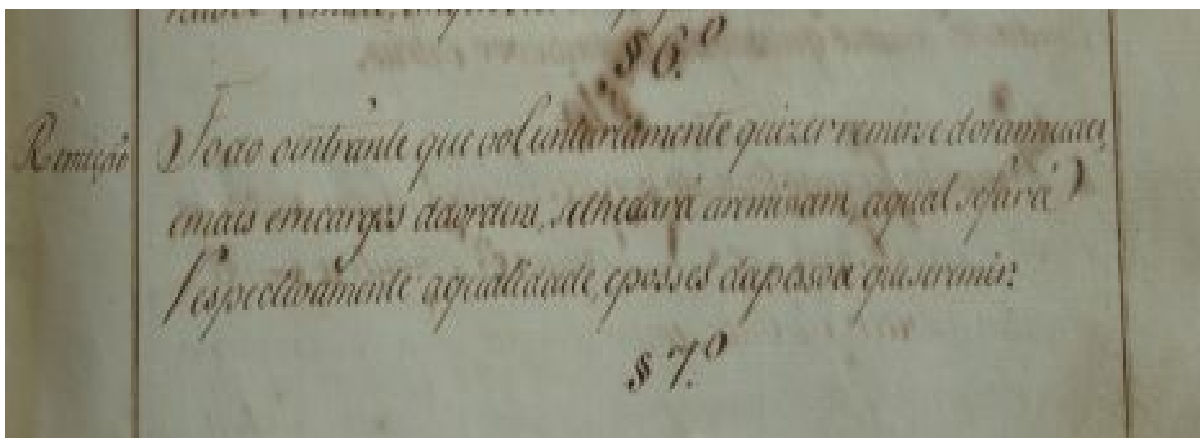 § 6.º
Remição
Todo o entrante que voluntariamente quizer remirse dos annuaes,
emais emcargos daordem, selhedará aremisam, aqual sefará
respectivamente aqualidade, eposses dapessoa queseremir.
§ 7.º